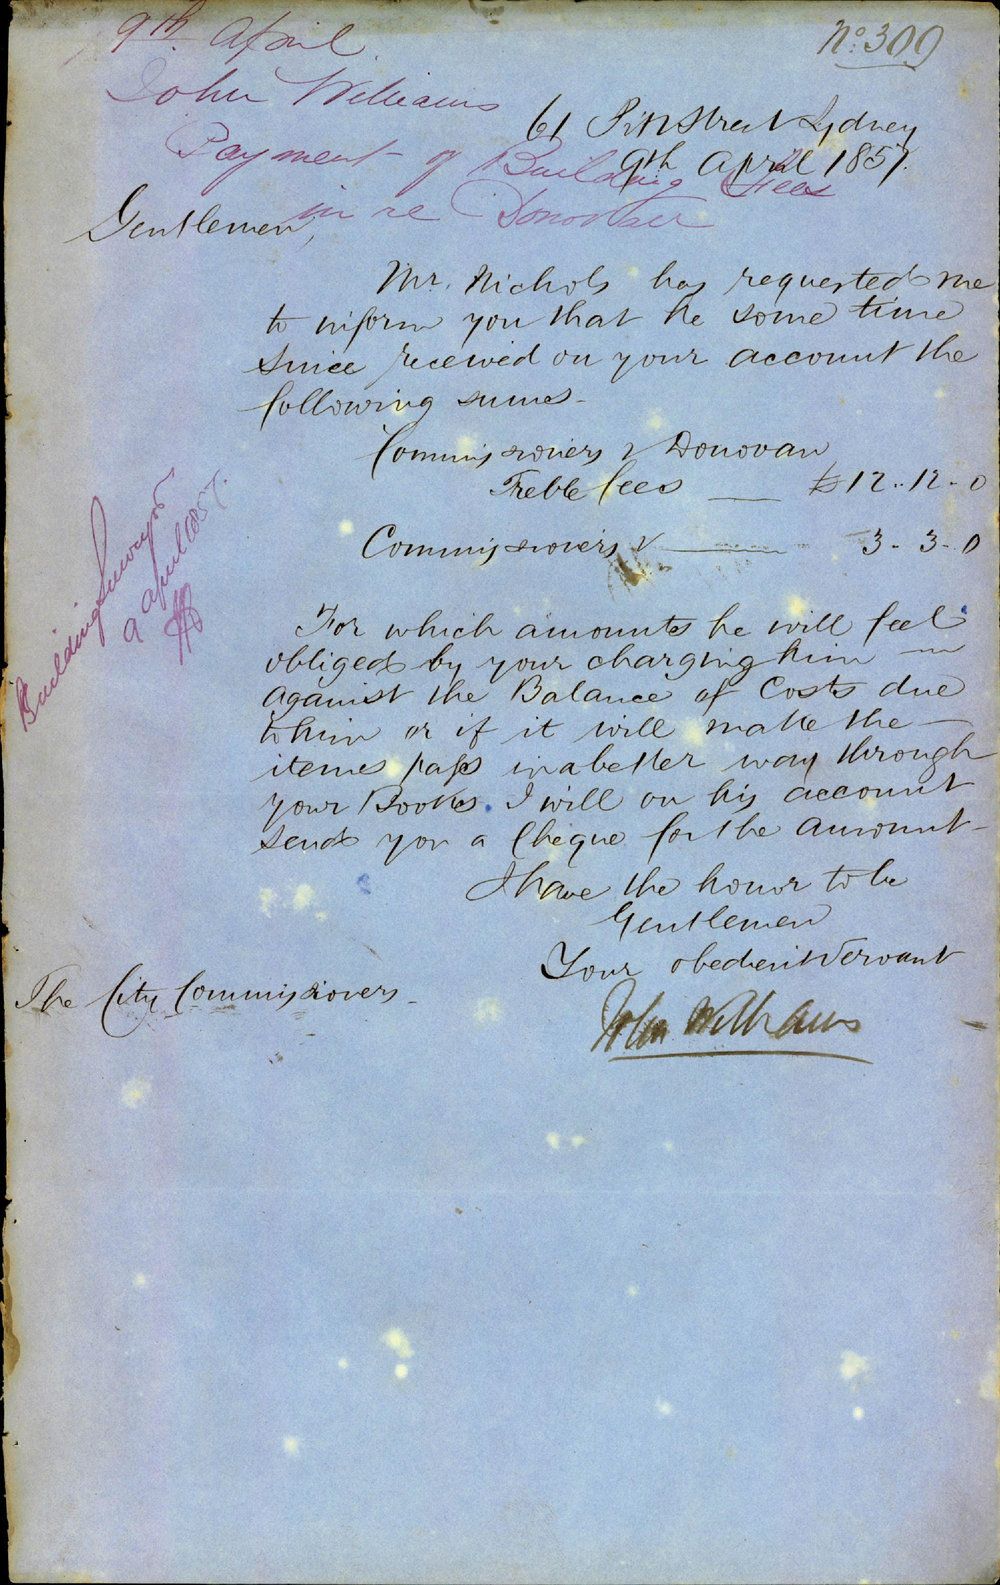 No. 309
9th April
John Williams
Payment of Building Fees
in re Donovan
61 Pitt Street Sydney
9th April 1857.
Gentlemen,
Mr. Nichols has requested me
to inform you that he some time
since received on your account the
following sums -
Commissioners v Donovan
Treble fees — £12..12.0
Commissioners v — 3-3-0
For which amounts he will feel
obliged by your charging him —
against the Balance of Costs due
to him or if it will make the —
items pass in a better way through
your Books. I will on his account
send you a Cheque for the amount -
I have the honor to be
Gentlemen
Your obedient Servant
John Williams
The City Commissioners -
Building Surveyor
9 April 1857.